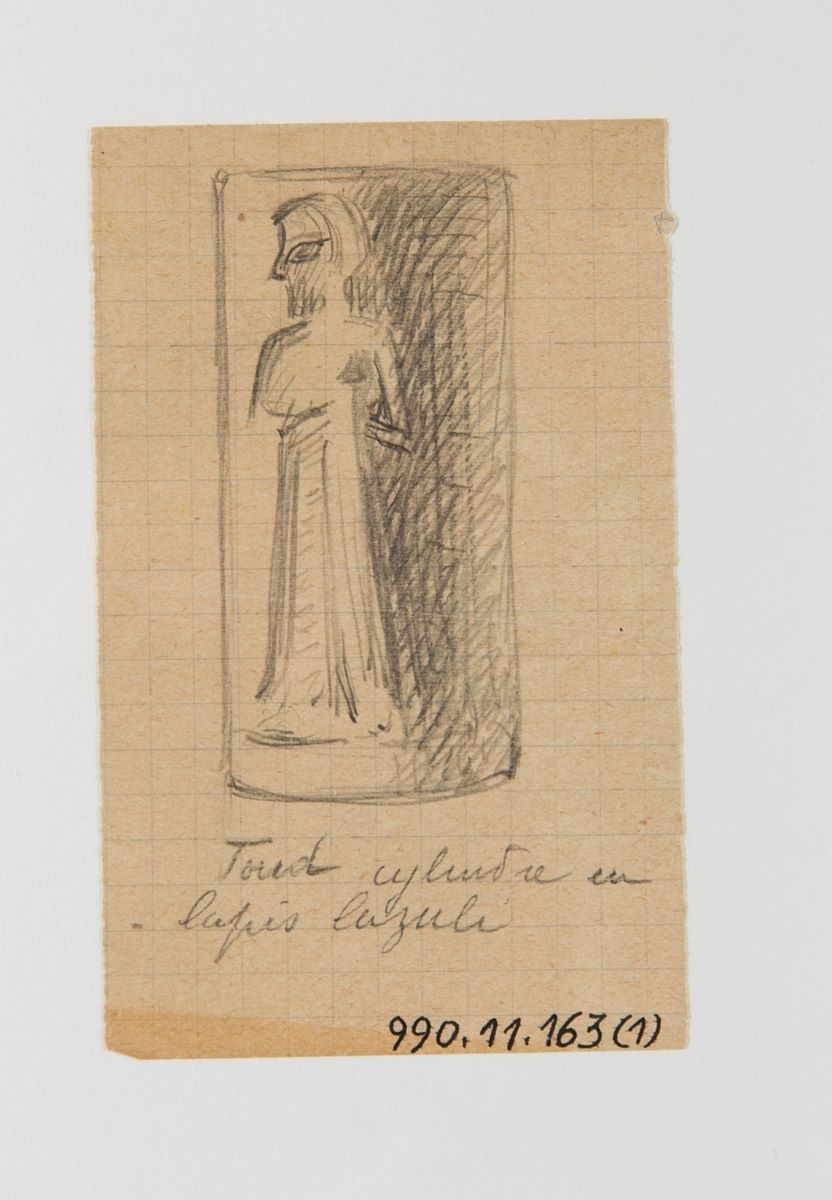 Toud cylindre en
lapis lazuli
990.11.163(1)